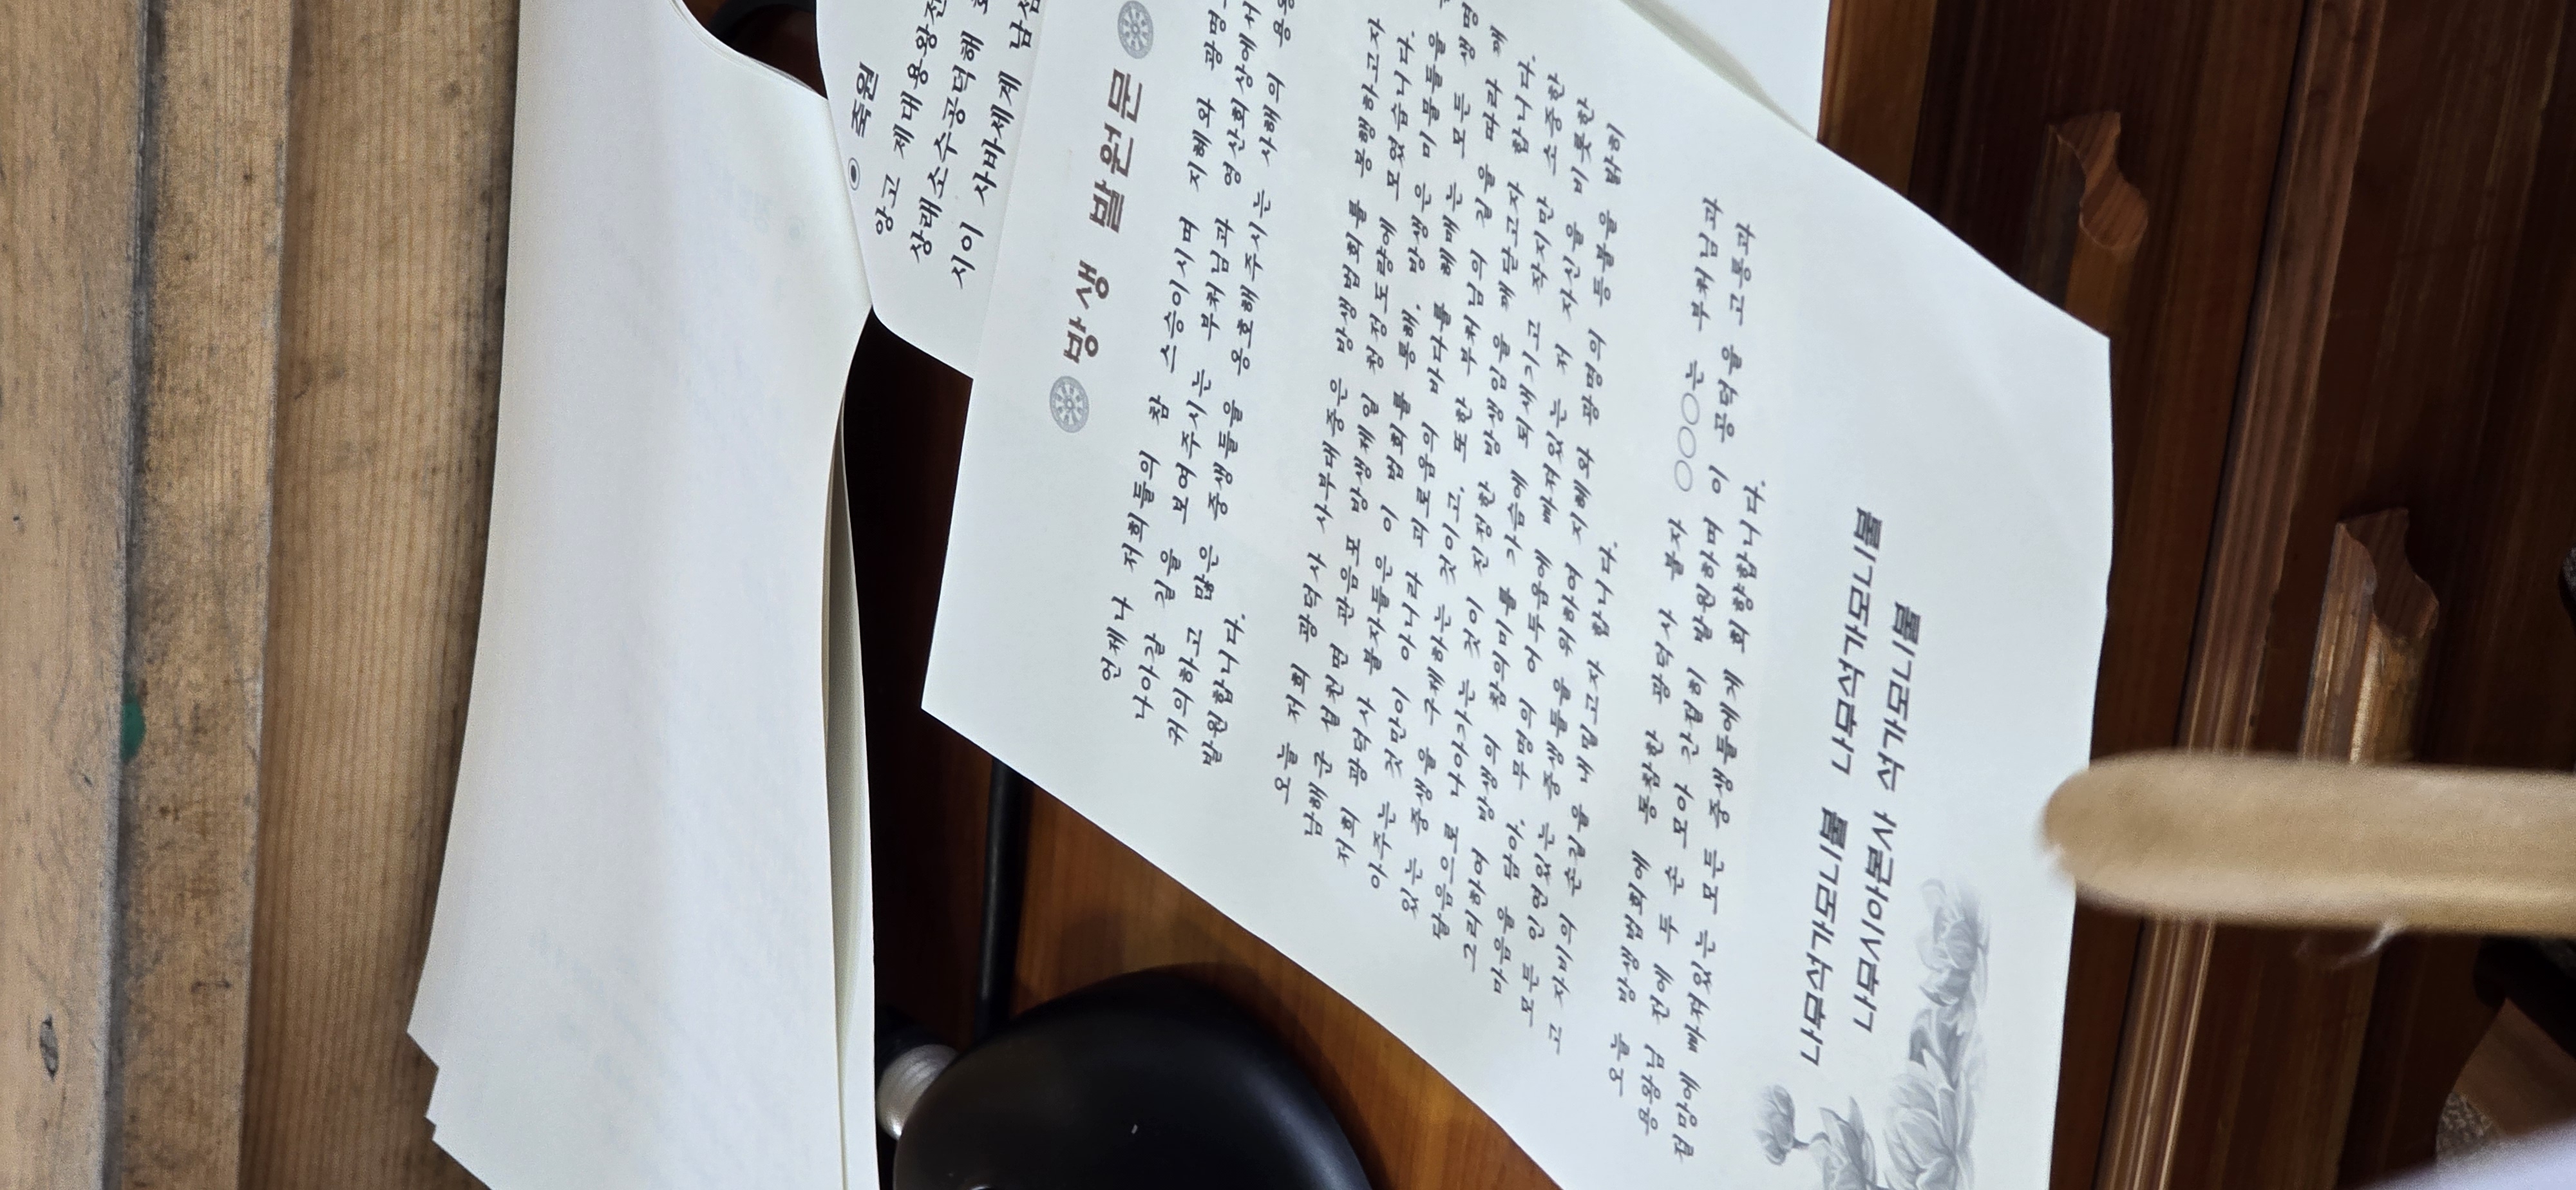 ◉ 축원
앙고 제대용왕전
상래소수공덕해
시이 사바세계 남섬
방생 발원문
언제나 저희들의 참 스승이시며 지혜와 광명
나아갈 길을 보여주시는 부처님과 영산회상에서
귀의하고 많은 중생들을 옹호해주시는 사해의
발원합니다.
오늘 저희 광덕사 사부대중은 방생법회를 봉행하고자
남해군 설천면 관음포 방생제일 청정도량에 모였습니다.
저희 광덕사 불자들은 이 법회를 통해, 방생은 미물들을
아주는 것만이 아니라 괴로움의 바다를 헤매는 모든 생명
있는 중생을 구제하는 것이고, 또한 부처님의 길을 따라 깨
달음으로 나아가는 것이 진정한 방생임을 깨닫고자 합니다.
그리하여 방생의 참의미를 가슴에 되새기고 작지만 소중한
마음을 담아, 무명의 어두움에 빠져있는 저 자신을 비롯한
모든 인연있는 중생들을 위하여 지혜와 광명의 등불을 밝히
고 자비의 손길을 내밀고자 합니다.
오늘 방생법회에 동참한 광덕사 불자 ○○○는 부처님과
용왕님 전에 두 손 모아 간절히 발원하며 이 공덕을 고통과
절망에 빠져있는 모든 중생들에게 회향합니다.
나무석가모니불 나무석가모니불
나무시아본사 석가모니불